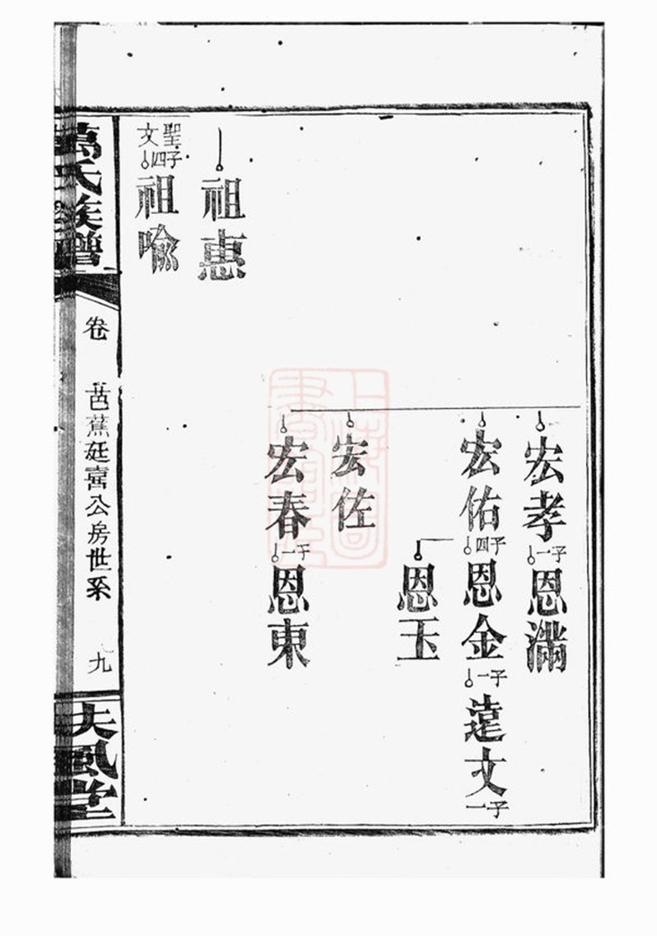 宏孝
一子
恩滿
宏佑
四子
恩金
一子
遠文
一子
恩玉
宏佐
宏春
一子
恩東
祖惠
聖文
四子
祖喻
氏族譜
卷
芭蕉廷富公房世系
九
大風堂